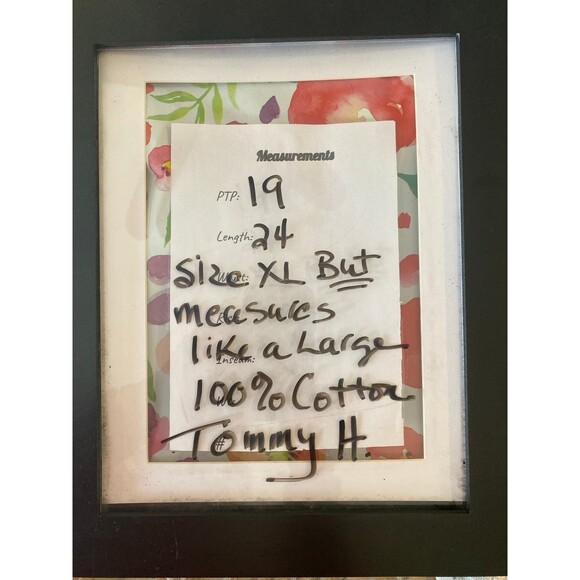 Measurements
PTP: 19
Length: 24
Size XL But
measures
like a Large
Inseam:
100% Cotton
Tommy H.